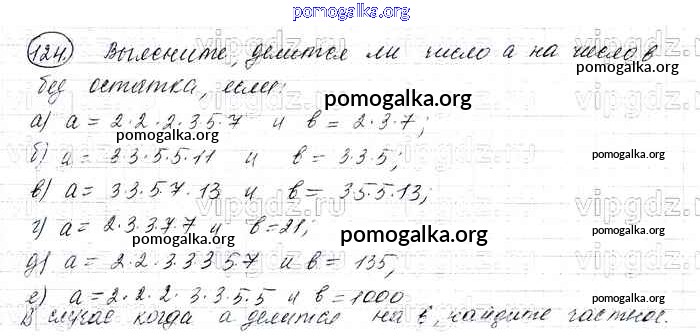 pomogalka.org
124. Выясните, делится ли число а на число в
без остатка, если:
pomogalka.org
pomogalka.org
а) а = 2·2·2·3·5·7 и в = 2·3·7;
pomogalka.org
б) а = 3·3·5·5·11 и в = 3·3·5;
pomogalka.org
в) а = 3·3·5·7·13 и в = 3·5·5·13;
г) а = 2·3·3·7·7 и в = 21;
pomogalka.org
pomogalka.org
д) а = 2·2·3·3·3·5·7 и в = 135,
pomogalka.org
е) а = 2·2·2·3·3·5·5 и в = 1000
pomogalka.org
В случае когда а делится на в, найдите частное.
pomogalka.org